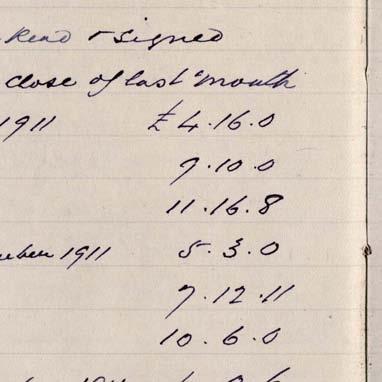 Read & Signed
close of last month
1911 £4.16.0
9.10.0
11.16.8
mber 1911 5.3.0
7.12.11
10.6.0